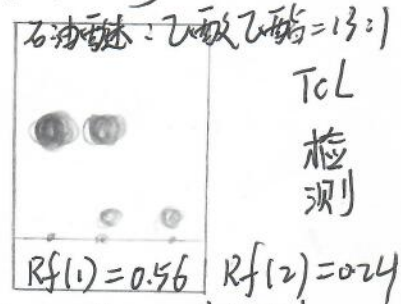 石油醚:乙酸乙酯=13:1
TCL
检
测
Rf(1)=0.56 Rf(2)=0.24